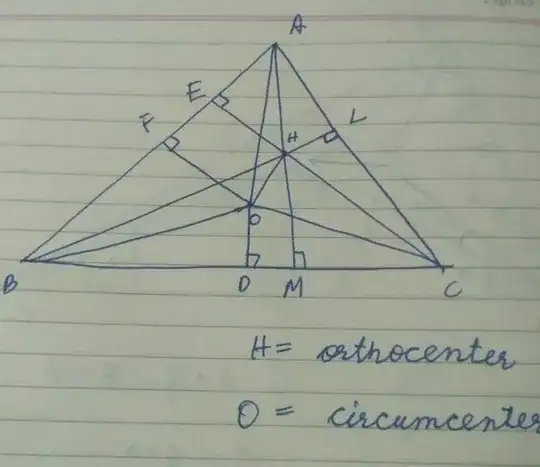 A
E
L
F
H
O
B
D
M
C
H = orthocenter
O = circumcenter